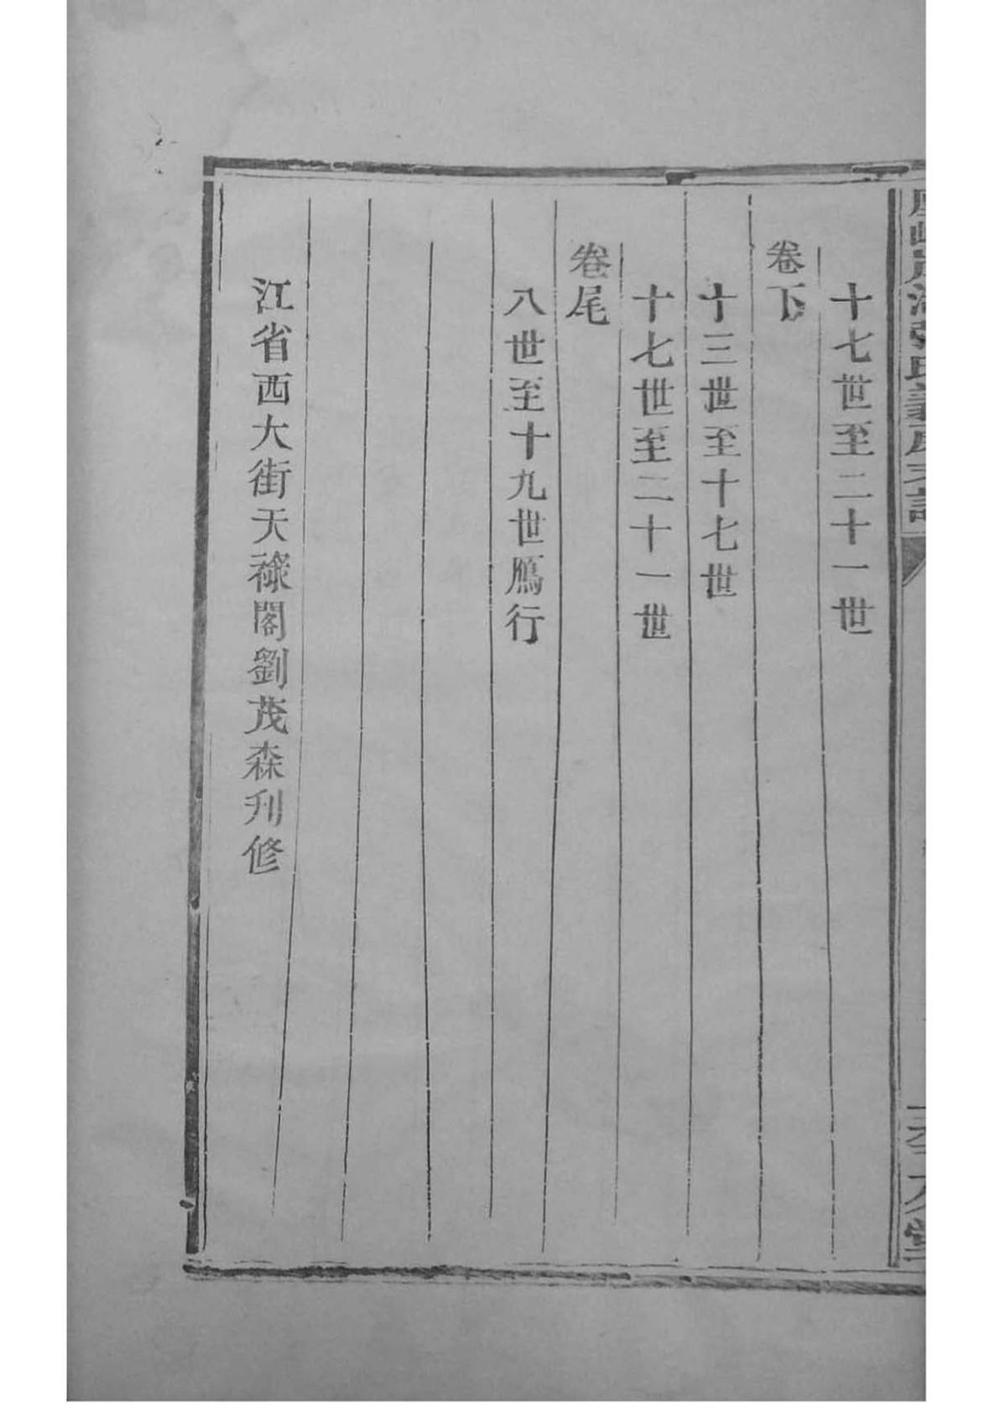 十七世至二十一世
卷下
十三世至十七世
十七世至二十一世
卷尾
八世至十九世鴈行
江省西大街天祿閣劉茂森刋修